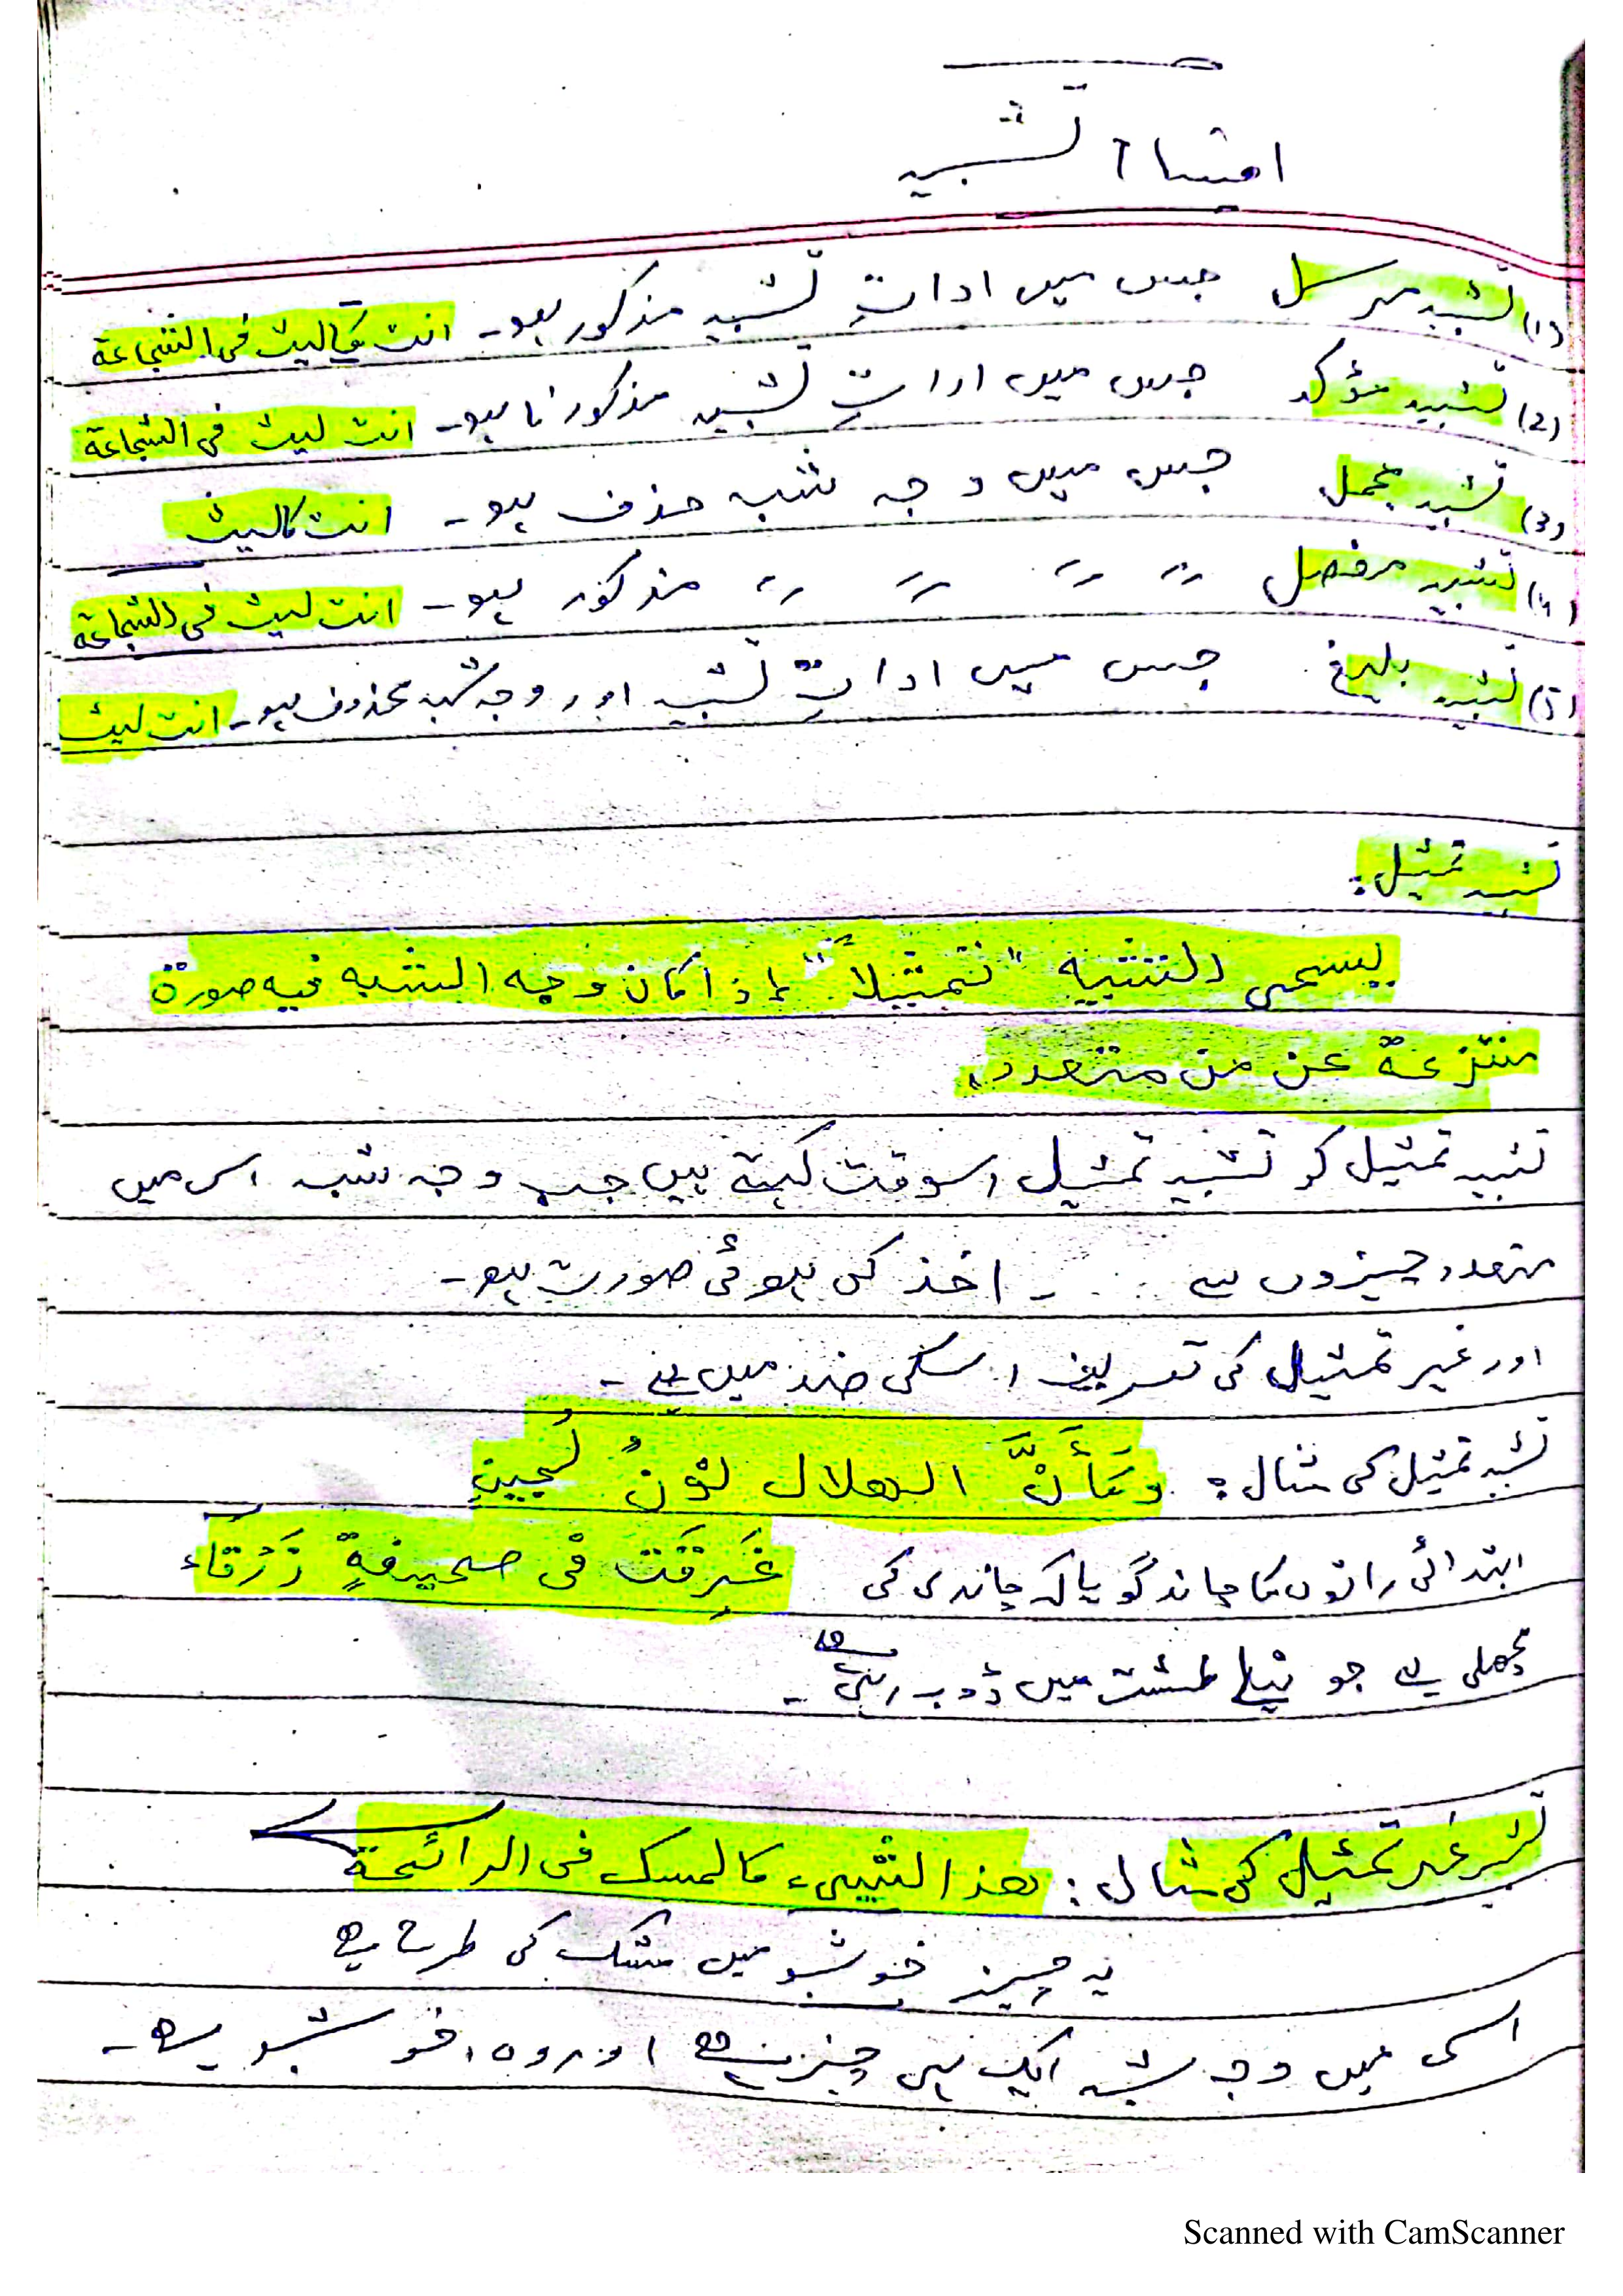 اقسام تشبیہ
(1) تشبیہ مرسل جس میں اداتِ تشبیہ مذکور ہو۔ انت کالیث فی الشجاعة
(2) تشبیہ مؤکد جس میں اداتِ تشبیہ مذکور نا ہو۔ انت لیث فی الشجاعة
(3) تشبیہ مجمل جس میں وجہ شبہ حذف ہو۔ انت کالیث
(4) تشبیہ مفصل 〃 〃 〃 〃 مذکور ہو۔ انت لیث فی الشجاعة
(5) تشبیہ بلیغ جس میں اداتِ تشبیہ اور وجہ شبہ محذوف ہو۔ انت لیث
تشبیہ تمثیل:
یسمی التشبیه "تمثیلاً" إذا کان وجه الشبه فیه صورة
منتزعة عن من متعدد،
تشبیہ تمثیل کو تشبیہ تمثیل اسوقت کہتے ہیں جب وجہ شبہ اس میں
متعدد چیزوں سے ۔ اخذ کی ہوئی صورت ہو۔
اور غیر تمثیل کی تعریف اسکی ضد میں ہے۔
تشبیہ تمثیل کی مثال: وَکَأَنَّ الهلال نونُ لُجینٍ
ابتدائی راتوں کا چاند گویا کہ چاندی کی غَرِقَت فی صحیفةٍ زَرْقَاء
مچھلی ہے جو نیلے طشت میں ڈوب رہی ہے۔
تشبیہ غیر تمثیل کی مثال: هذا الشیء کالمسک فی الرائحة
یہ چیز خوشبو میں مشک کی طرح ہے
اسی میں وجہ شبہ ایک ہی چیز ہے اور وہ خوشبو ہے۔
Scanned with CamScanner